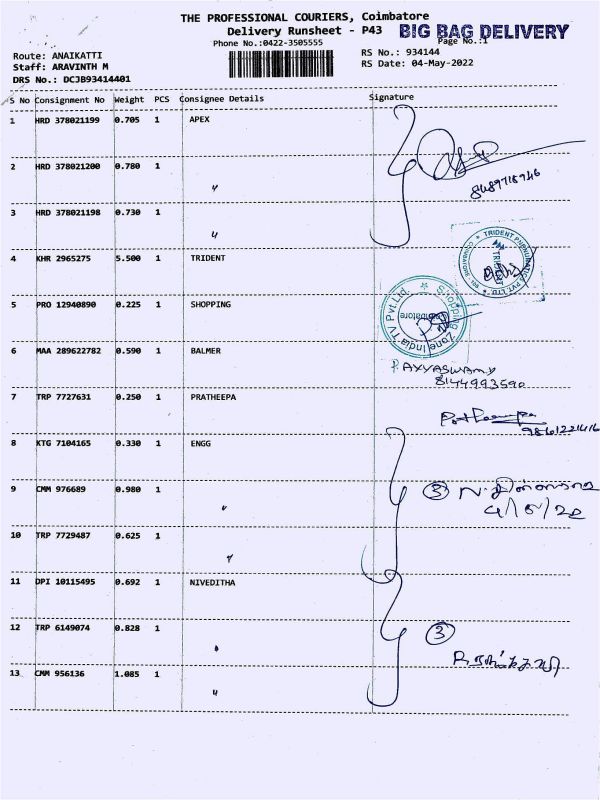 THE PROFESSIONAL COURIERS, Coimbatore
Delivery Runsheet - P43 BIG BAG DELIVERY
Phone No.:0422-3505555 Page No.:1
Route: ANAIKATTI RS No.: 934144
Staff: ARAVINTH M RS Date: 04-May-2022
DRS No.: DCJB93414401
S No Consignment No Weight PCS Consignee Details Signature
1 HRD 378021199 0.705 1 APEX
2 HRD 378021200 0.780 1 "
8489718946
3 HRD 378021198 0.730 1 "
4 KHR 2965275 5.500 1 TRIDENT
TRIDENT PNEUMATICS PVT. LTD.
5 PRO 12940890 0.225 1 SHOPPING
Shopping Zone India TV Pvt Ltd.
Coimbatore
6 MAA 289622782 0.590 1 BALMER
P. AYYASWAMY
8144993590
7 TRP 7727631 0.250 1 PRATHEEPA
8 KTG 7104165 0.330 1 ENGG
9 CMM 976689 0.980 1 " 3
4/5/22
10 TRP 7729487 0.625 1 "
11 DPI 10115495 0.692 1 NIVEDITHA
12 TRP 6149074 0.828 1 3
13 CMM 956136 1.085 1 "